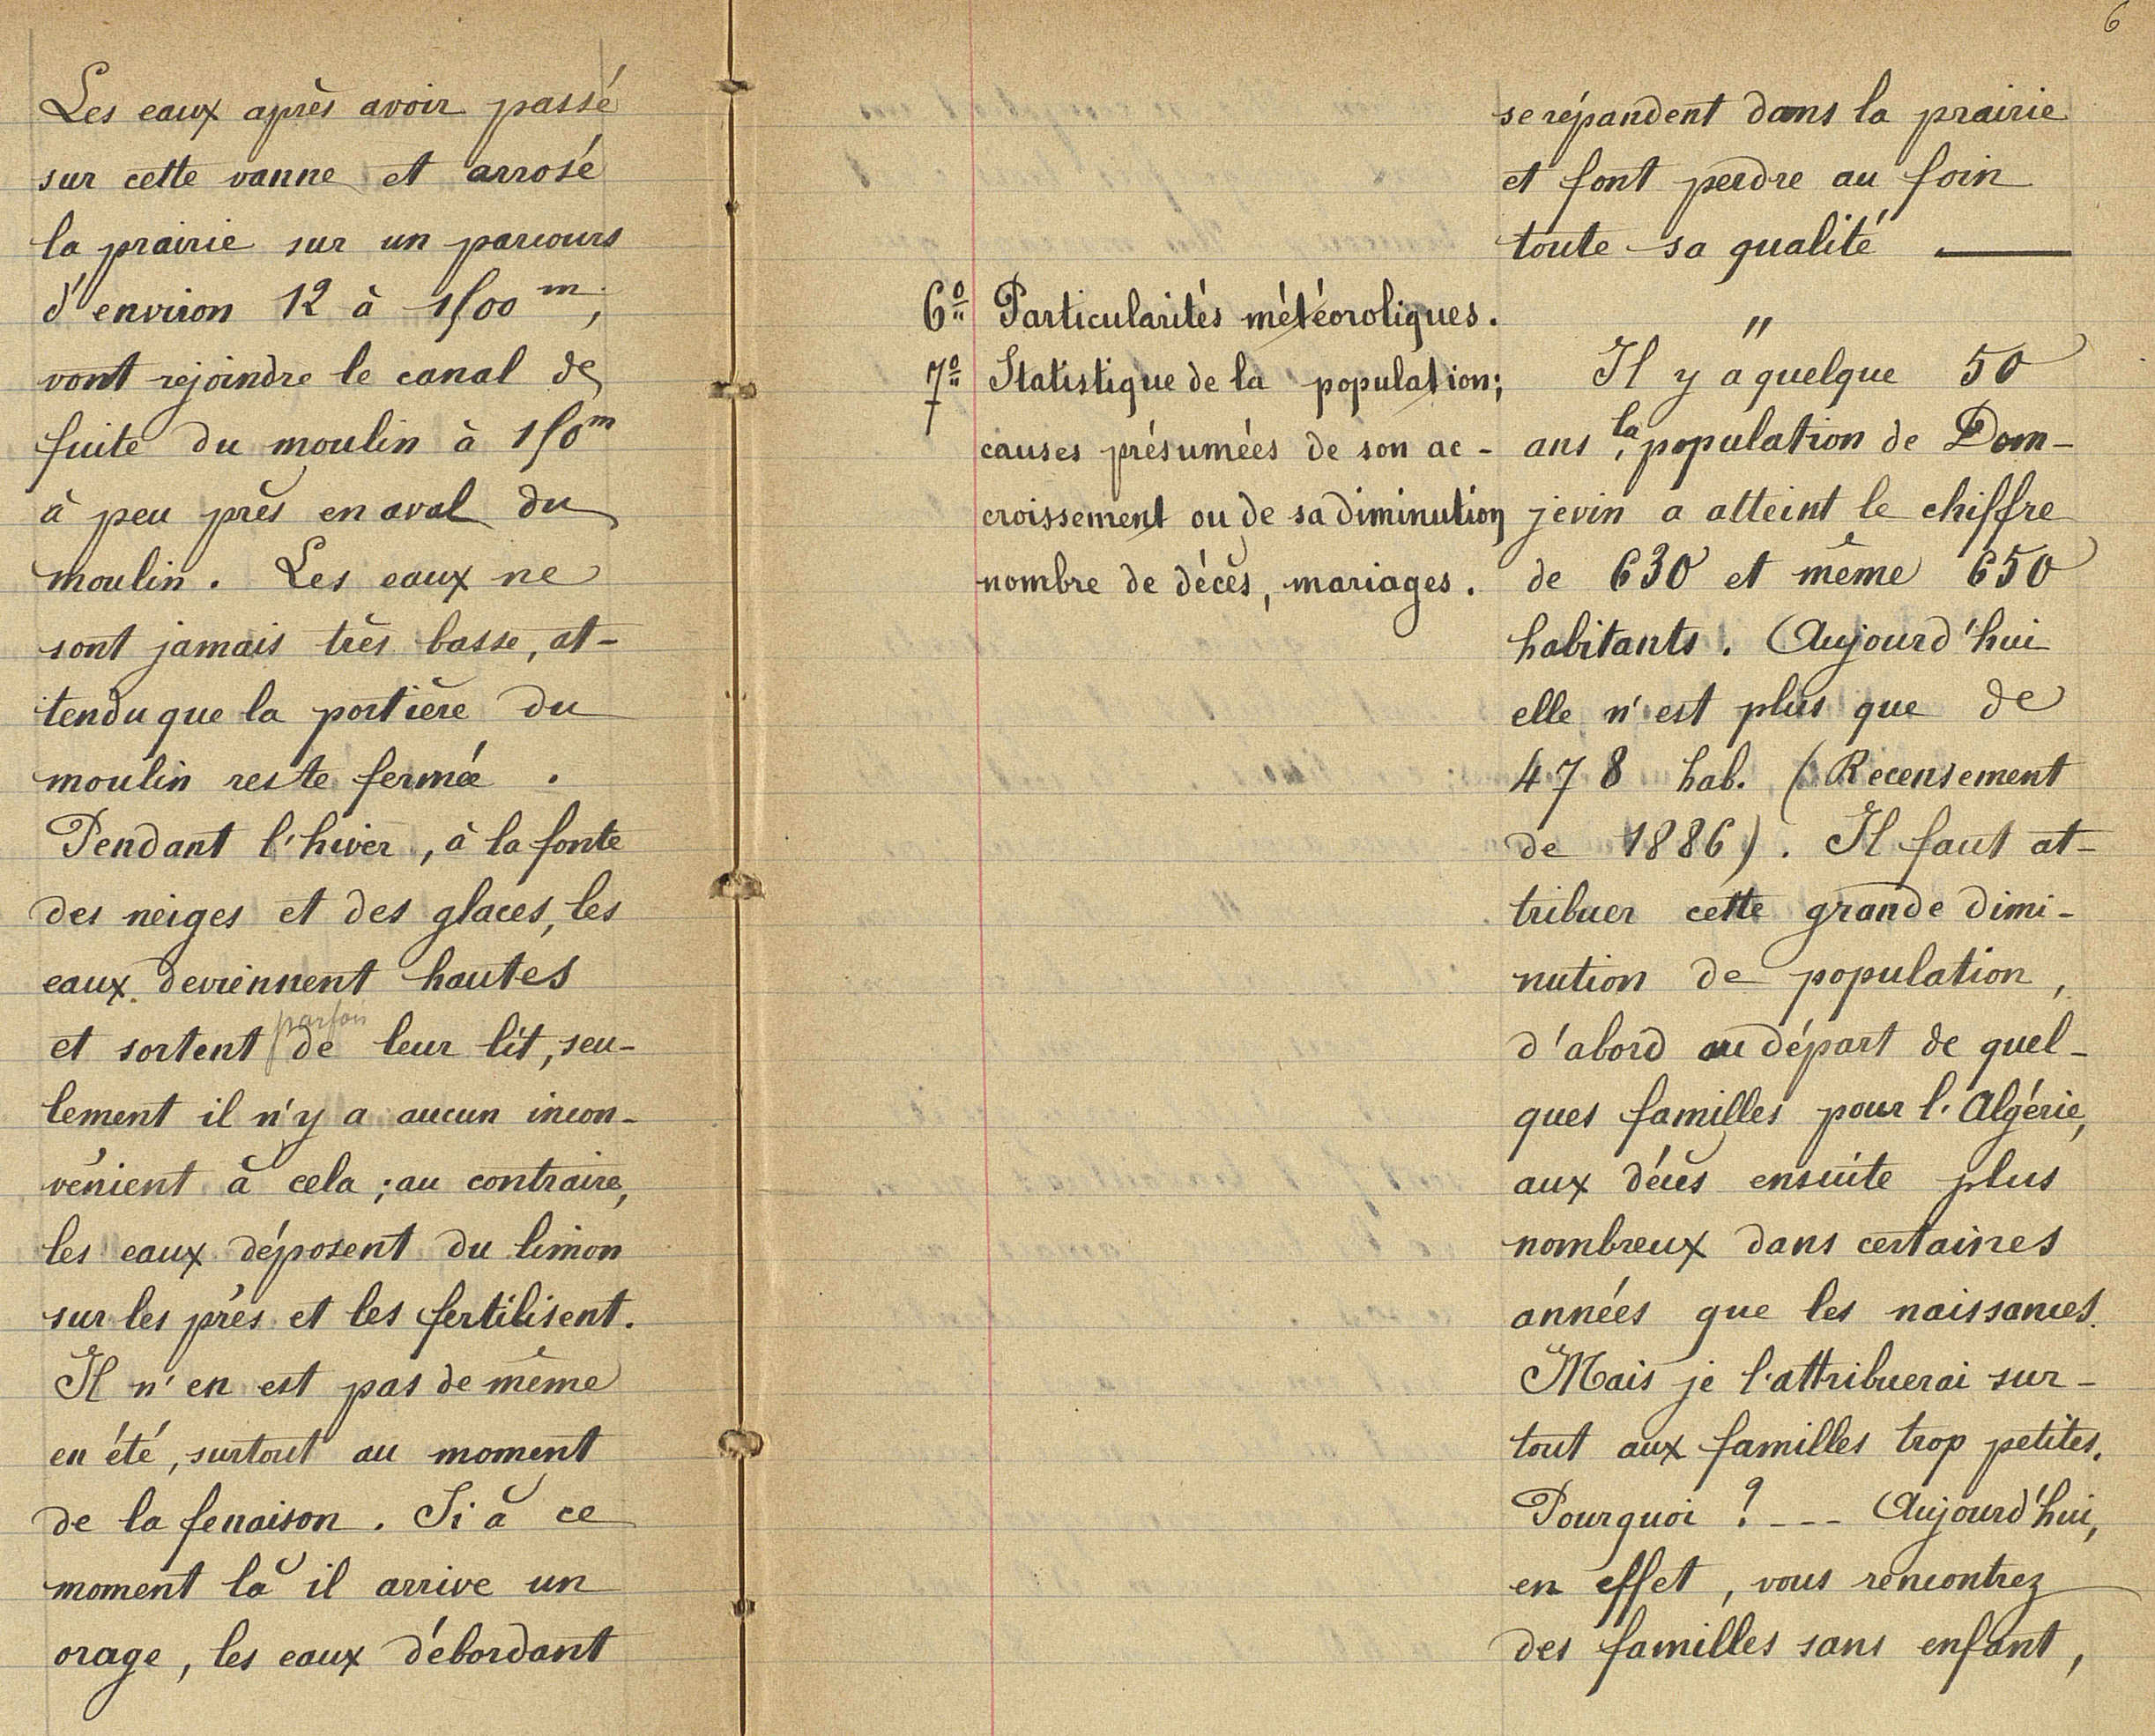 Les eaux après avoir passé
sur cette vanne et arrosé
la prairie sur un parcours
d'environ 12 à 1500 m,
vont rejoindre le canal de
fuite du moulin à 150 m
à peu près en aval du
moulin. Les eaux ne
sont jamais très basse, at-
tendu que la portière du
moulin reste fermée.
Pendant l'hiver, à la fonte
des neiges et des glaces, les
eaux deviennent hautes
et sortent parfois de leur lit, seu-
lement il n'y a aucun incon-
vénient à cela ; au contraire,
les eaux déposent du limon
sur les prés et les fertilisent.
Il n'en est pas de même
en été, surtout au moment
de la fenaison. Si à ce
moment là il arrive un
orage, les eaux débordant
6
se répandent dans la prairie
et font perdre au foin
toute sa qualité —
6º Particularités météoroliques. "
7º Statistique de la population;
causes présumées de son ac-
croissement ou de sa diminution
nombre de décès, mariages.
Il y a quelque 50
ans, la population de Dom-
jevin a atteint le chiffre
de 630 et même 650
habitants. Aujourd'hui
elle n'est plus que de
478 hab. (Recensement
de 1886). Il faut at-
tribuer cette grande dimi-
nution de population,
d'abord au départ de quel-
ques familles pour l'Algérie,
aux décès ensuite plus
nombreux dans certaines
années que les naissances.
Mais je l'attribuerai sur-
tout aux familles trop petites.
Pourquoi ? --- Aujourd'hui,
en effet, vous rencontrez
des familles sans enfant,